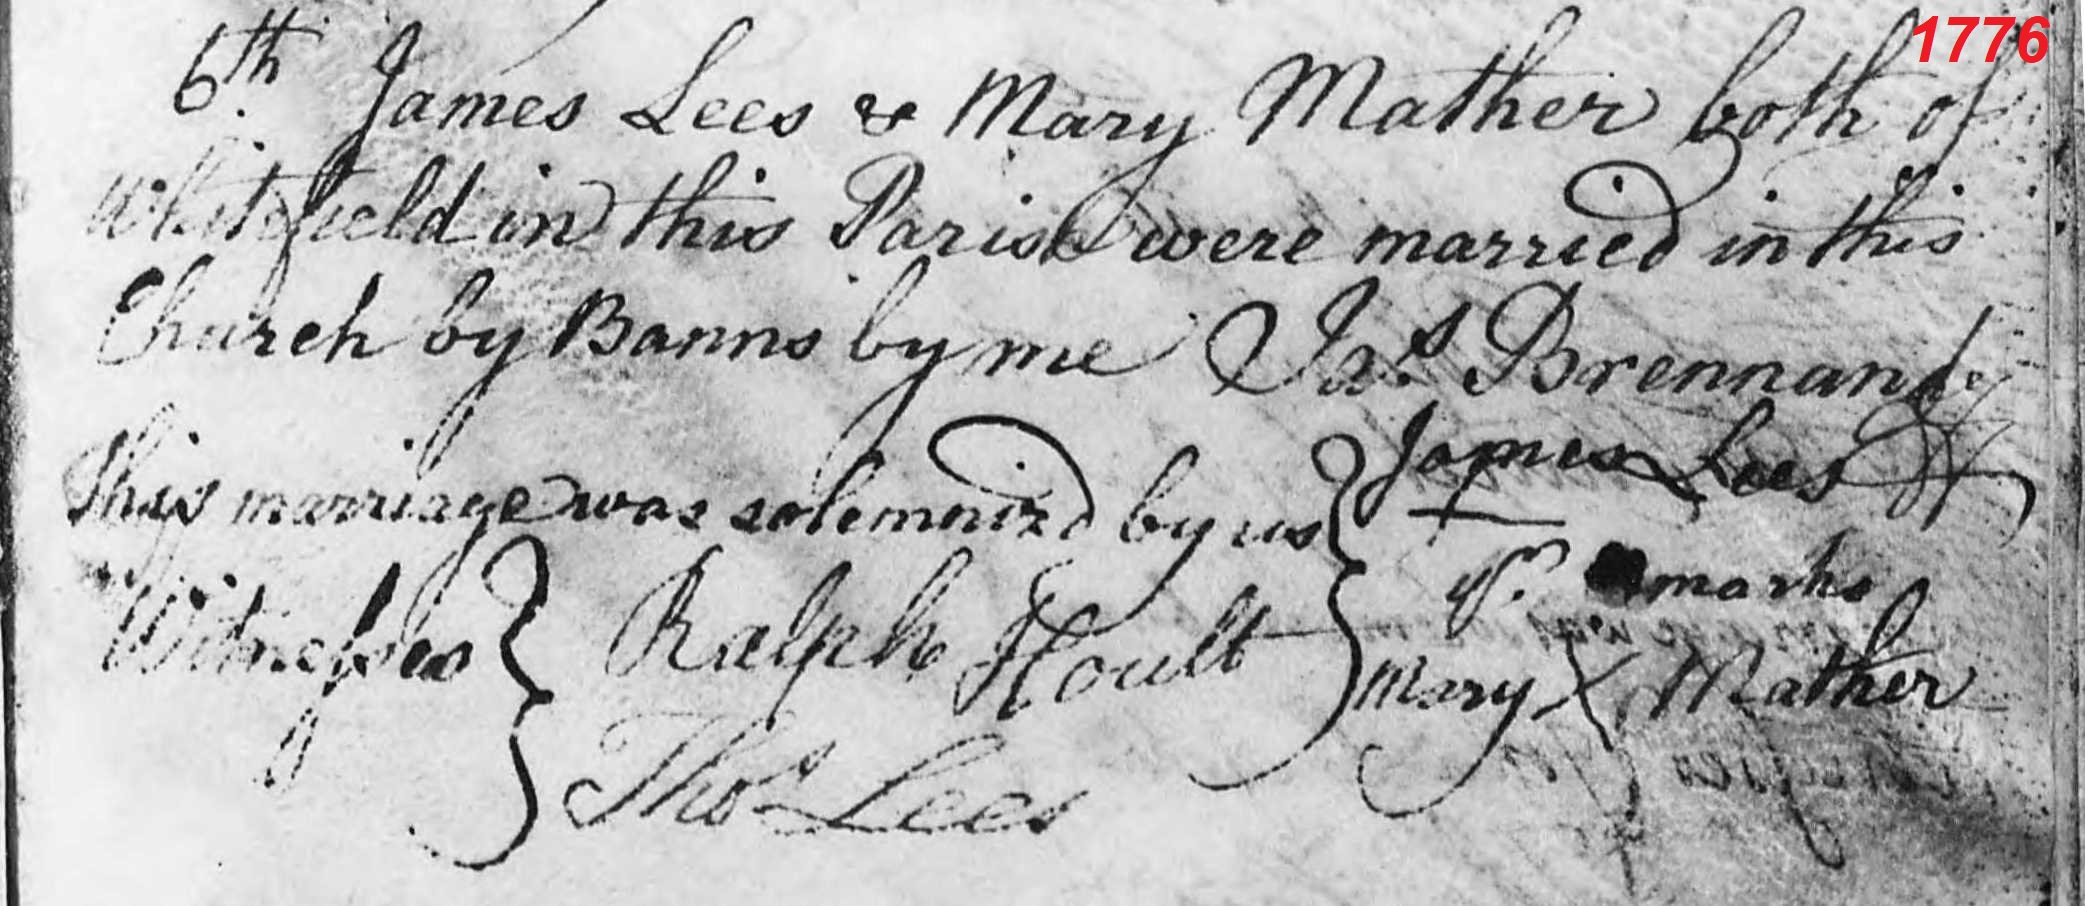 1776
6th. James Lees & Mary Mather both of
Whitefield in this Parish were married in this
Church by Banns by me Jas. Brennand
This marriage was solemnizd by us James Lees
marks
Witnesses Ralph Hoult Mary X Mather
Thos Lees